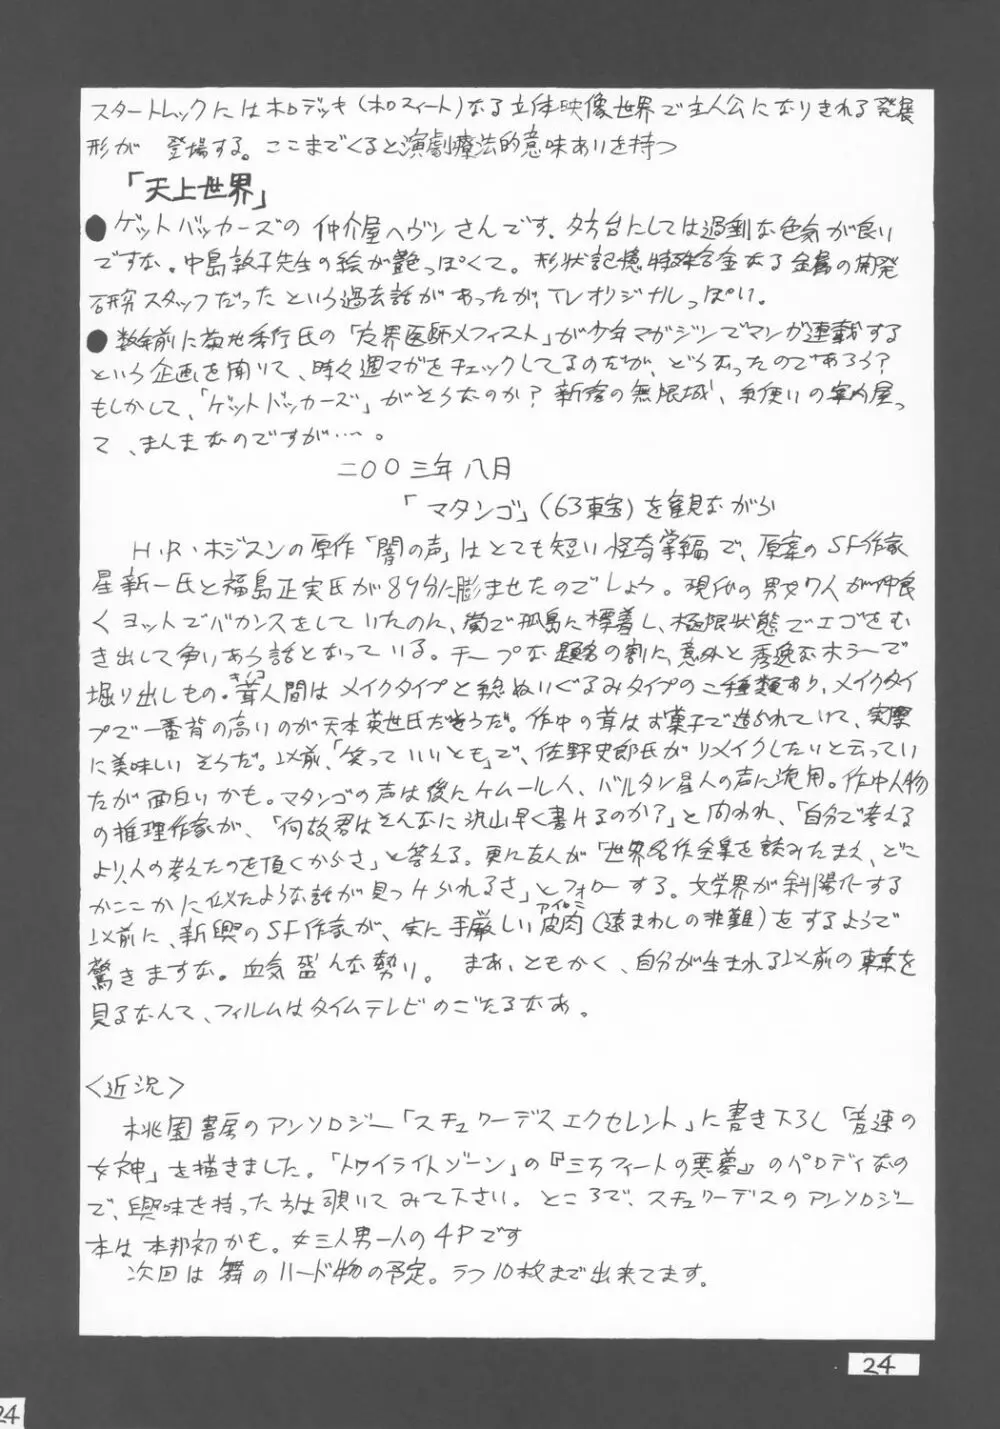 スタートレックにはホロデッキ(ホロスィート)なる立体映像世界で主人公になりきれる発展
形が 登場する。ここまでくると演劇療法的意味あいを持つ
「天上世界」
●ゲットバッカーズの 仲介屋ヘヴンさんです。夕方台にしては過剰な色気が良い
ですな。中島敦子先生の絵が艶っぽくて。形状記憶特殊合金なる金属の開発
研究スタッフだったという過去話があったが、TVオリジナルっぽい。
●数年前に菊地秀行氏の「魔界医師メフィスト」が少年マガジンでマンガ連載する
という企画を聞いて、時々週マガをチェックしてるのだが、どうなったのであろう?
もしかして、「ゲットバッカーズ」がそうなのか?新宿の無限城、糸使いの案内屋っ
て、まんまなのですが……。
二〇〇三年 八月
「マタンゴ」(63東宝)を観ながら
H・R・ホジスンの原作「闇の声」はとても短い怪奇掌編で、原案のSF作家
星新一氏と福島正実氏が89分に膨ませたのでしょう。現代の男女7人が仲良
くヨットでバカンスをしていたのに、嵐で孤島に標着し、極限状態でエゴをむ
き出して争いあう話となっている。チープな題名の割に、意外と秀逸なホラーで
掘り出しもの。茸人間はメイクタイプと総ぬいぐるみタイプの二種類あり、メイクタイ
キノコ
プで一番背の高いのが天本英世氏だそうだ。作中の茸はお菓子で造られていて、実際
に美味しいそうだ。以前、「笑っていいとも」で、佐野史郎氏がリメイクしたいと云ってい
たが面白いかも。マタンゴの声は後にケムール人、バルタン星人の声に流用。作中人物
の推理作家が、「何故君はそんなに沢山早く書けるのか?」と問われ、「自分で考える
より、人の考えたのを頂くからさ」と答える。更に友人が「世界名作全集を読みたまえ、どこ
かここかに似たような話が見つけられるさ」とフォローする。文学界が斜陽化する
以前に、新興のSF作家が、実に手厳しい皮肉(遠まわしの非難)をするようで
アイロニー
驚きますな。血気盛んな勢い。 まあ、ともかく、自分が生まれる以前の東京を
見るなんて、フィルムはタイムテレビのごたるなあ。
〈近況〉
桃園書房のアンソロジー「スチュワーデスエクセレント」に書き下ろし「音速の
女神」を描きました。「トワイライトゾーン」の『三万フィートの悪夢』のパロディなの
で、興味を持った方は覗いてみて下さい。ところで、スチュワーデスのアンソロジー
本は本邦初かも。女三人男一人の4Pです
次回は舞のハード物の予定。ラフ10枚まで出来てます。
24
24